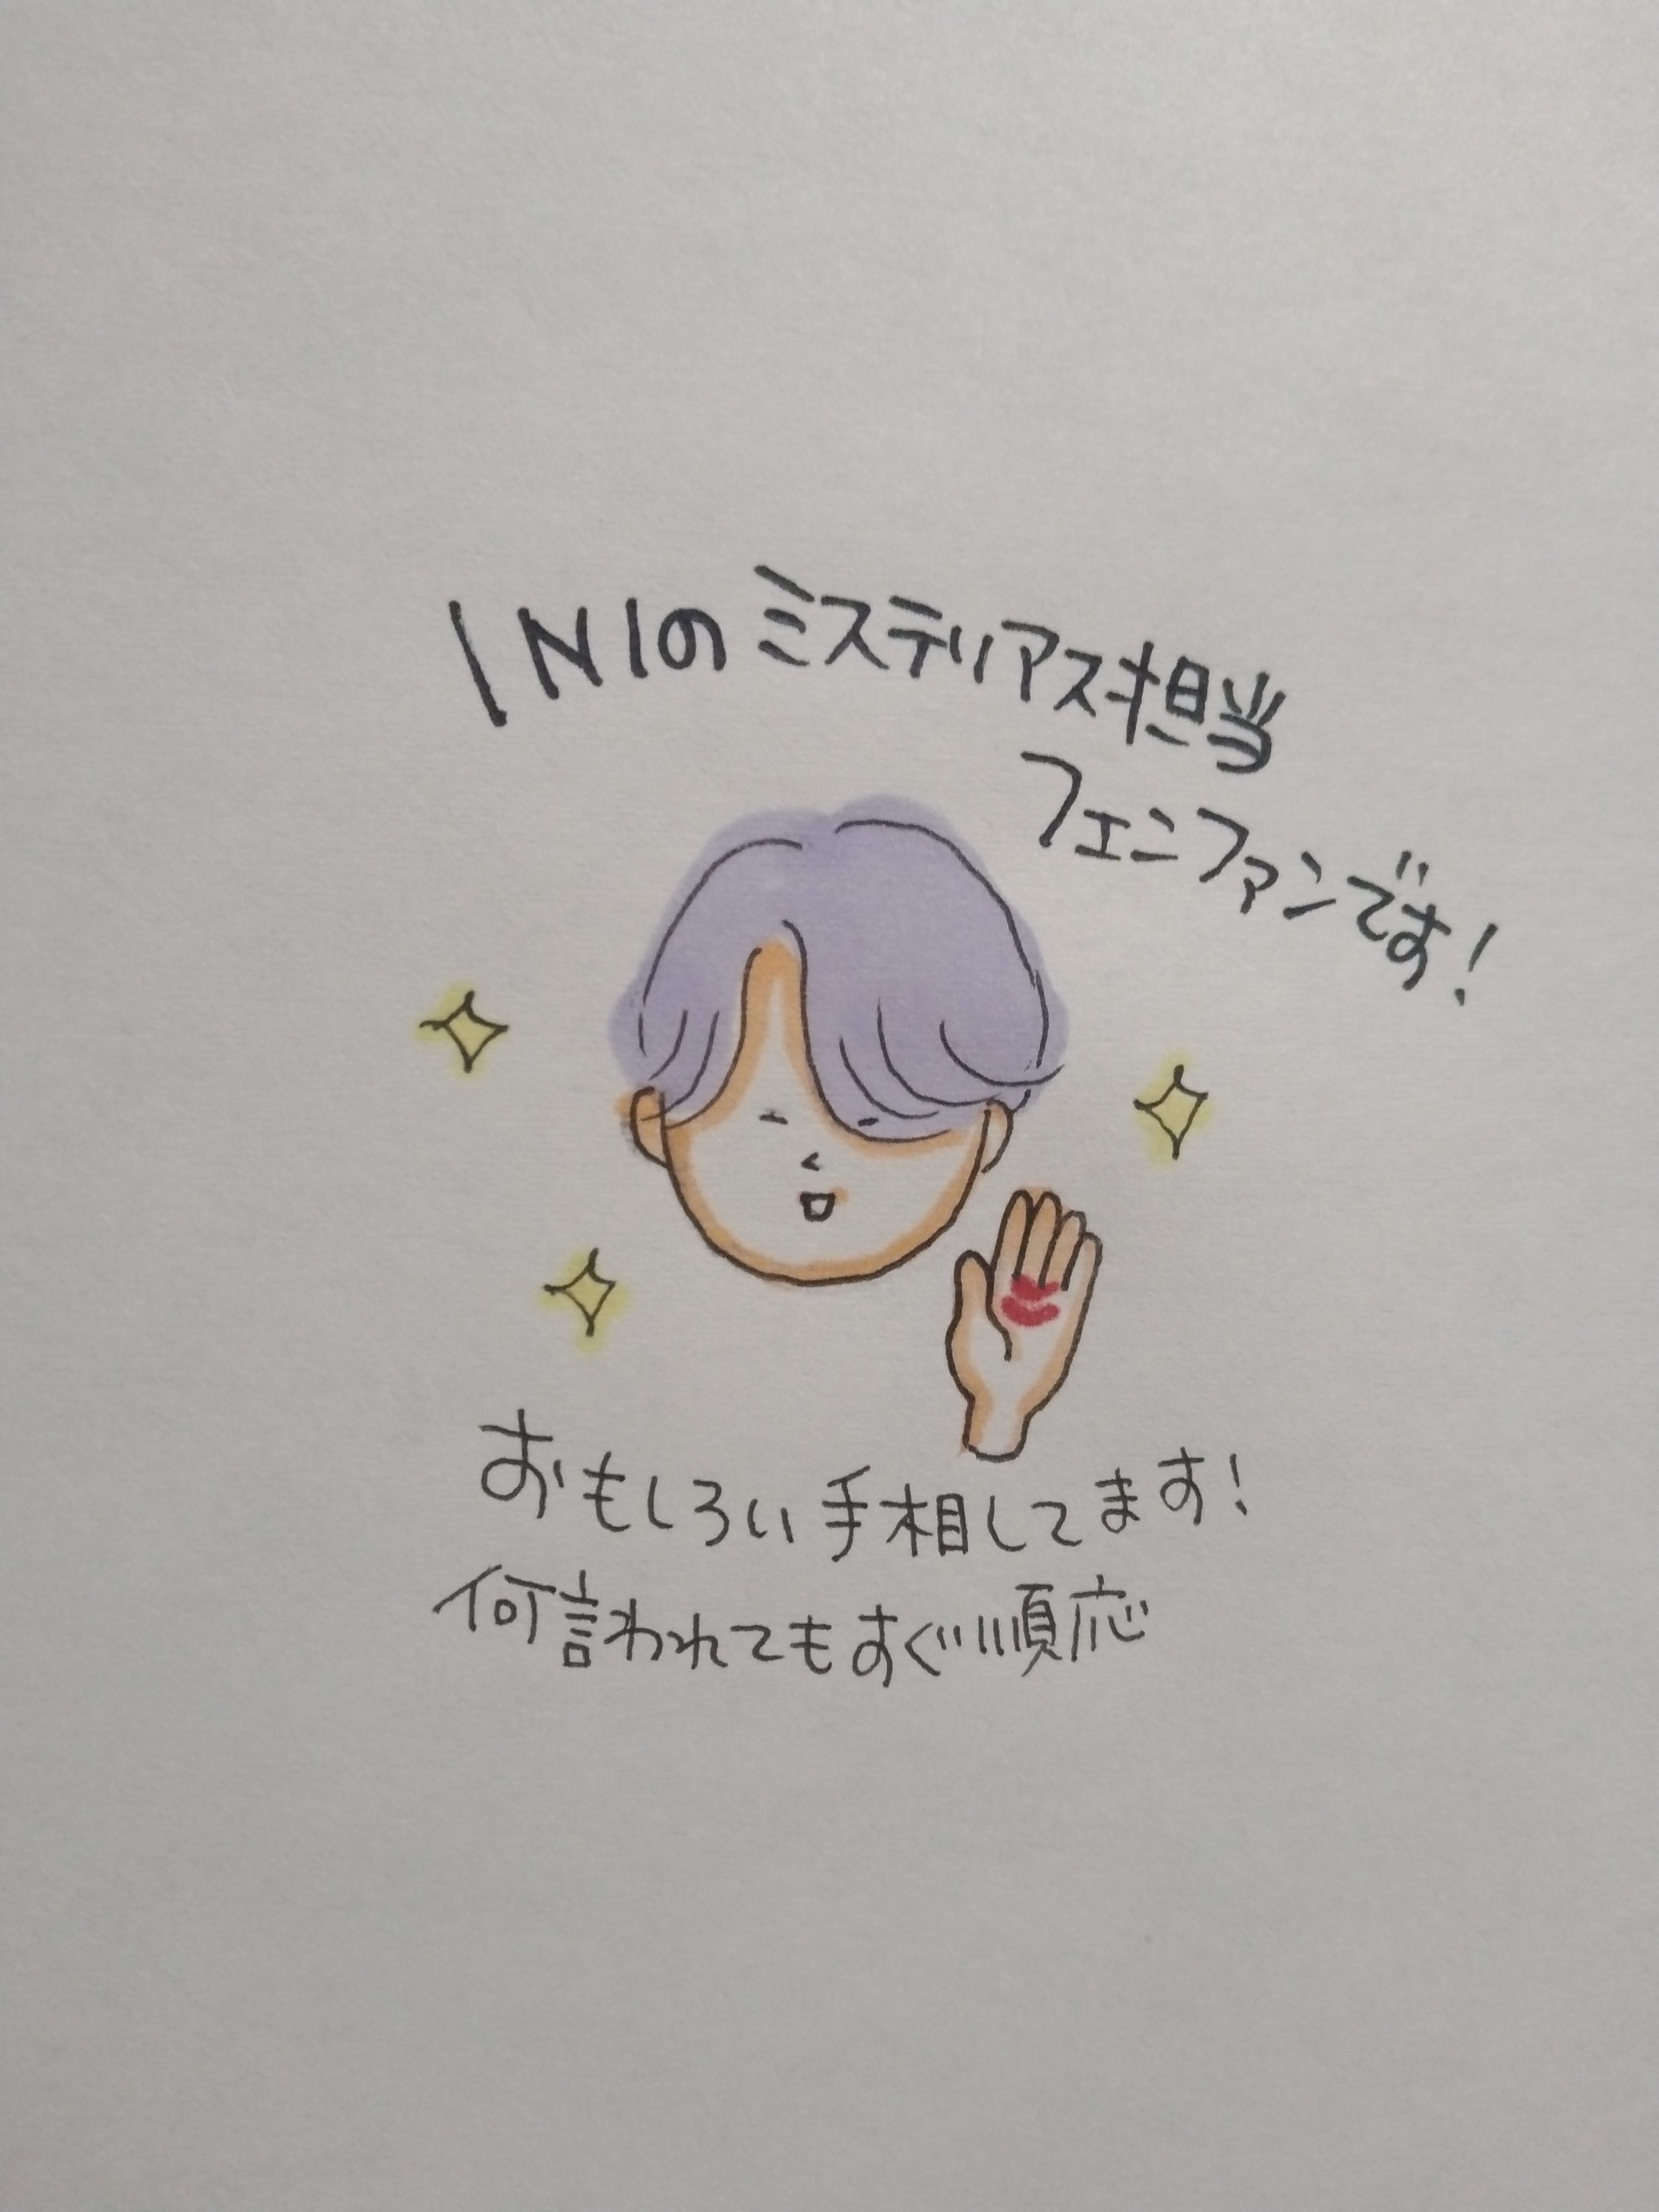 INIのミステリアス担当
フェニファンです!
おもしろい手相してます!
何言われてもすぐ順応